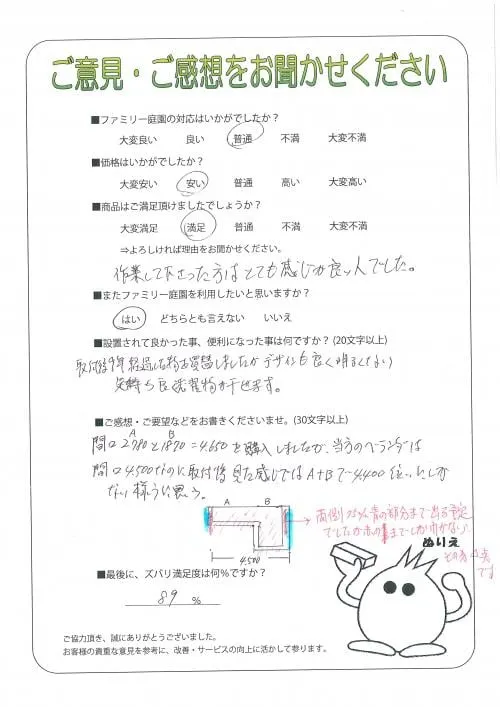 ご意見・ご感想をお聞かせください
■ファミリー庭園の対応はいかがでしたか？
大変良い 良い 普通 不満 大変不満
■価格はいかがでしたか？
大変安い 安い 普通 高い 大変高い
■商品はご満足頂けましたでしょうか？
大変満足 満足 普通 不満 大変不満
⇒よろしければ理由をお聞かせください。
作業して下さった方はとても感じが良い人でした。
■またファミリー庭園を利用したいと思いますか？
はい どちらとも言えない いいえ
■設置されて良かった事、便利になった事は何ですか？(20文字以上)
取付後9年経過した物を買替しましたがデザインも良く明るくていい
気持ち良く洗濯物が干せます。
■ご感想・ご要望などをお書きくださいませ。(30文字以上)
A B
間口2780と1870=4.650を購入しましたが、当方のベランダは
間口4.500なのに取付後見た感じではA+Bで4.400位いしか
ない様うに思う。
A B
両側 青の部分まで出る予定
でしたが赤の までしか
4.500
ぬりえ
です
■最後に、ズバリ満足度は何%ですか？
89 %
ご協力頂き、誠にありがとうございました。
お客様の貴重な意見を参考に、改善・サービスの向上に活かして参ります。